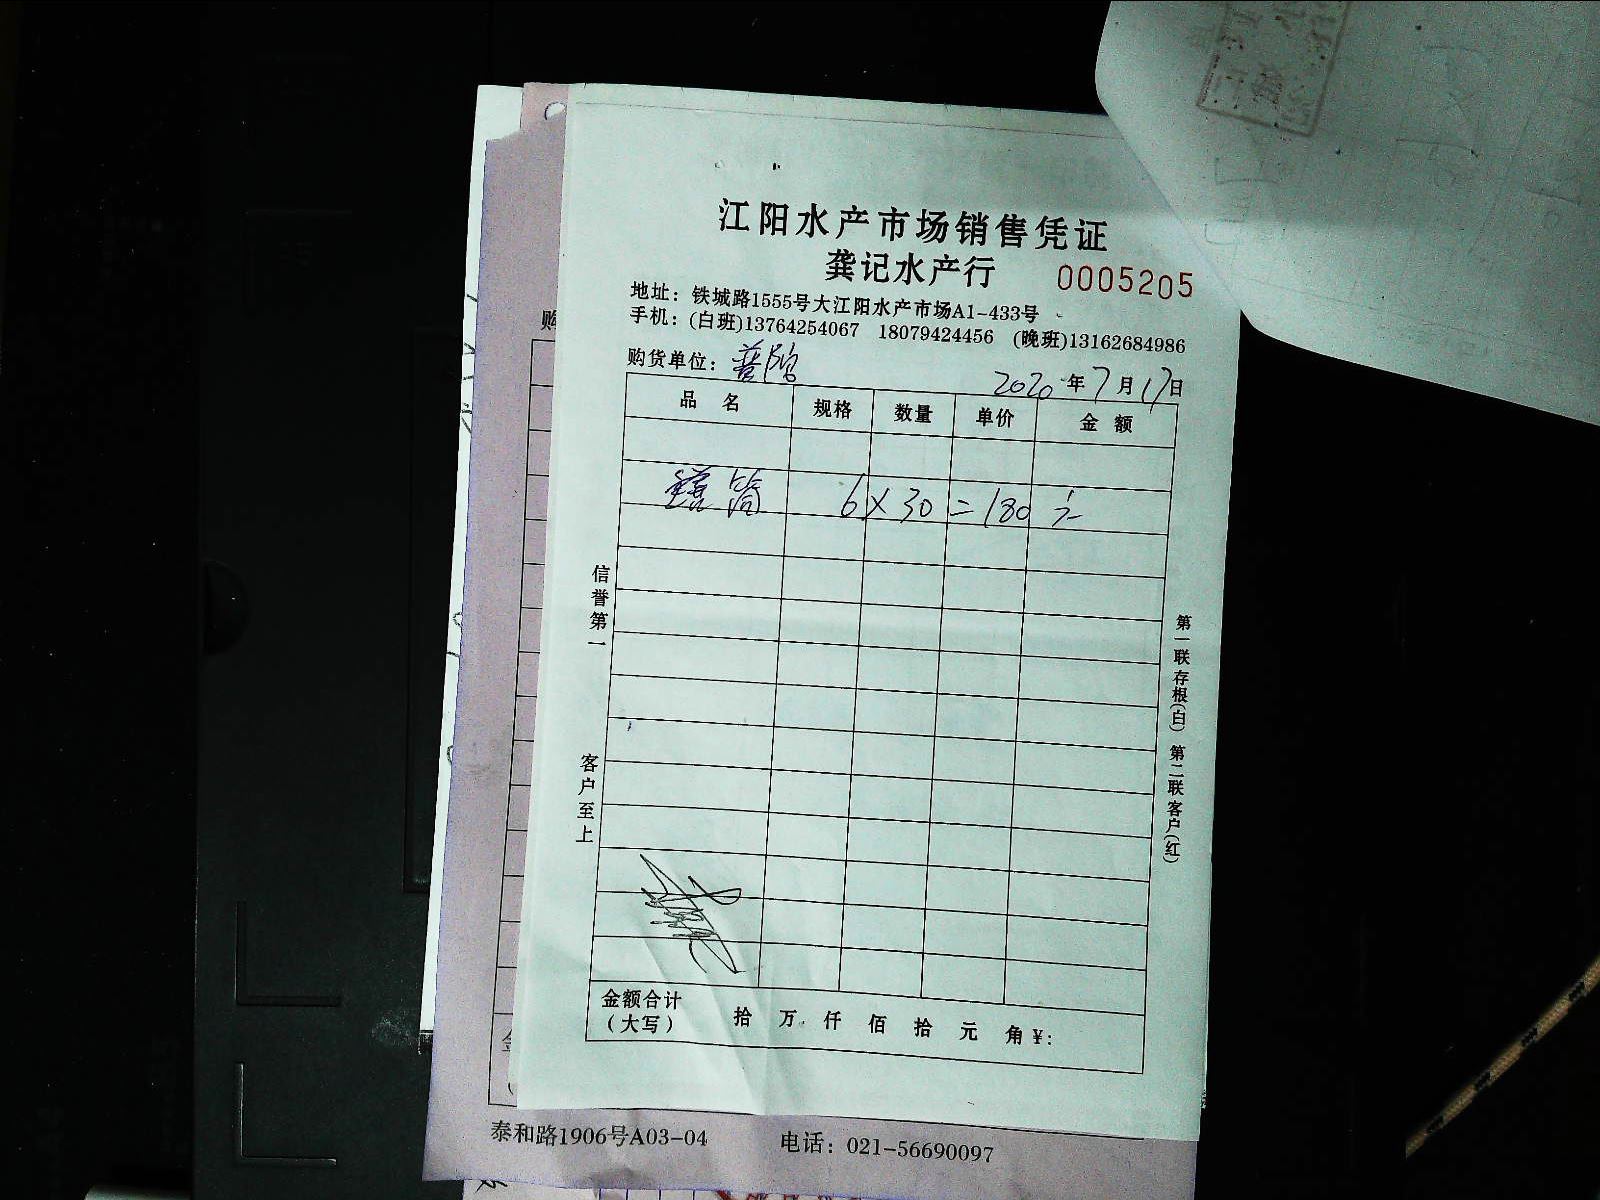 江阳水产市场销售凭证
龚记水产行 0005205
地址：铁城路1555号大江阳水产市场A1-433号
手机：(白班)13764254067 18079424456 (晚班)13162684986
购货单位：普陀 2020年7月17日
品名 规格 数量 单价 金额
鳝筒 6×30=180元
信誉第一
客户至上
第一联存根(白) 第二联客户(红)
金额合计
（大写） 拾 万 仟 佰 拾 元 角 ¥:
购
泰和路1906号A03-04 电话：021-56690097